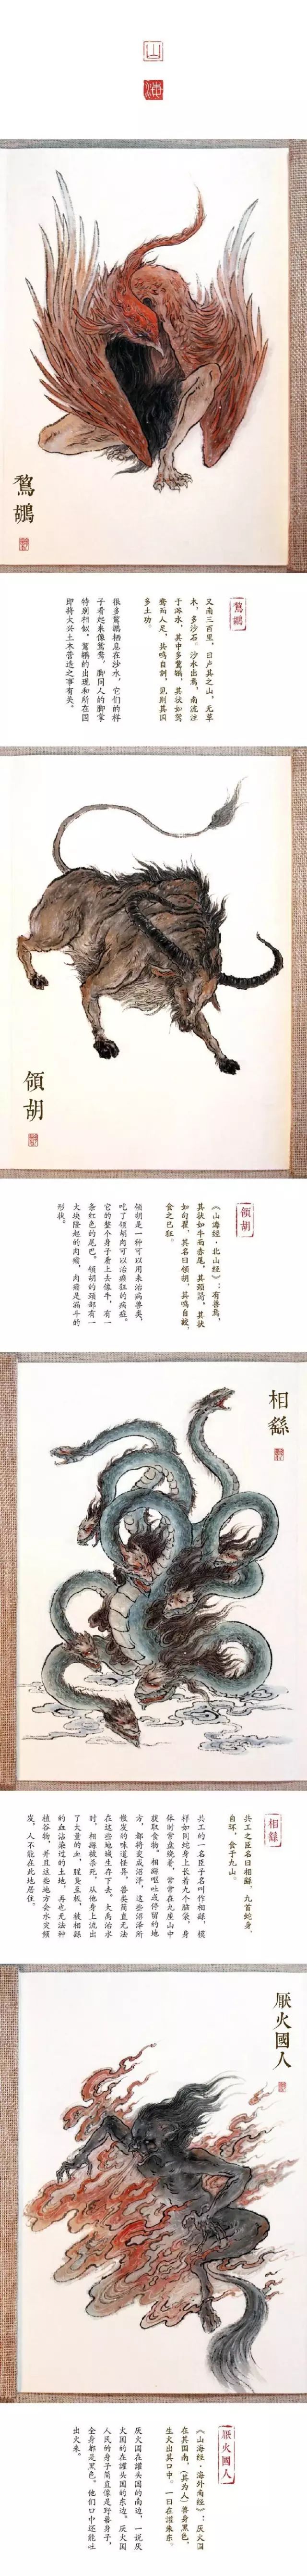 山
海
鵹鶘
鵹鶘
又南三百里，曰卢其之山，无草
木，多沙石，沙水出焉，南流注
于涔水，其中多鵹鶘，其状如鸳
鸯而人足，其鸣自訆，见则其国
多土功。
很多鵹鶘栖息在沙水，它们的样
子看起来像鸳鸯，脚同人的脚掌
特别相似。鵹鶘的出现和所在国
即将大兴土木营造之事有关。
領胡
領胡
《山海经·北山经》：有兽焉，
其状如牛而赤尾，其頸䏰，其状
如句瞿，其名曰领胡，其鸣自詨，
食之已狂。
领胡是一种可以用来治病兽类，
吃了领胡肉可以治癫狂的病症。
它的整个身子看上去像牛，有一
条红色的尾巴。领胡的颈部有一
大块隆起的肉瘤，肉瘤是漏斗的
形状。
相繇
相繇
共工之臣名曰相繇，九首蛇身，
自环，食于九山。
共工的一名臣子名叫作相繇，模
样如同蛇身上长着九个脑袋，身
体时常盘绕着，常常在九座山中
获取食物。相繇呕吐或停留的地
方，都将变成沼泽，这些沼泽所
散发的味道怪异，兽类简直无法
在这些地域生存下去。大禹治水
时，相繇被杀死，从他身上流出
了大量的血，腥臭至极，被相繇
的血沾染过的土地，再也无法种
植谷物，并且这些地方会水灾频
发，人不能在此地居住。
厭火國人
厭火國人
《山海经·海外南经》：厌火国
在其国南，（其为人）兽身黑色，
生火出其口中。一曰在讙朱东。
厌火国在讙头国的南边，一说厌
火国的在讙头国的东边。厌火国
人民的身子简直像是野兽身子，
全身都是黑色。他们口中还能吐
出火来。